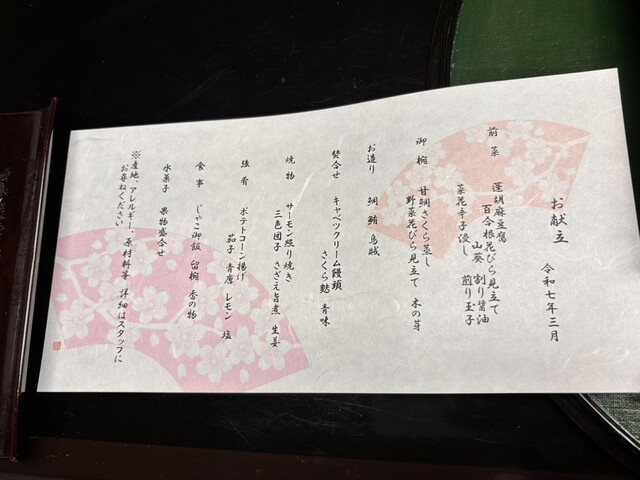 お献立　令和七年三月
前菜　蓮胡麻豆腐
百合根花びら見立て
山葵　割り醤油
菜花辛子浸し　煎り玉子
御椀　甘鯛さくら蒸し
野菜花びら見立て　木の芽
お造り　鯛　鮪　烏賊
焚合せ　キャベツクリーム饅頭
さくら麩　青味
焼物　サーモン照り焼き
三色団子　さざえ旨煮　生姜
強肴　ポテトコーン揚げ
茄子　青唐　レモン　塩
食事　じゃこ御飯　留椀　香の物
水菓子　果物盛合せ
※産地、アレルギー、原材料等　詳細はスタッフに
お尋ねください